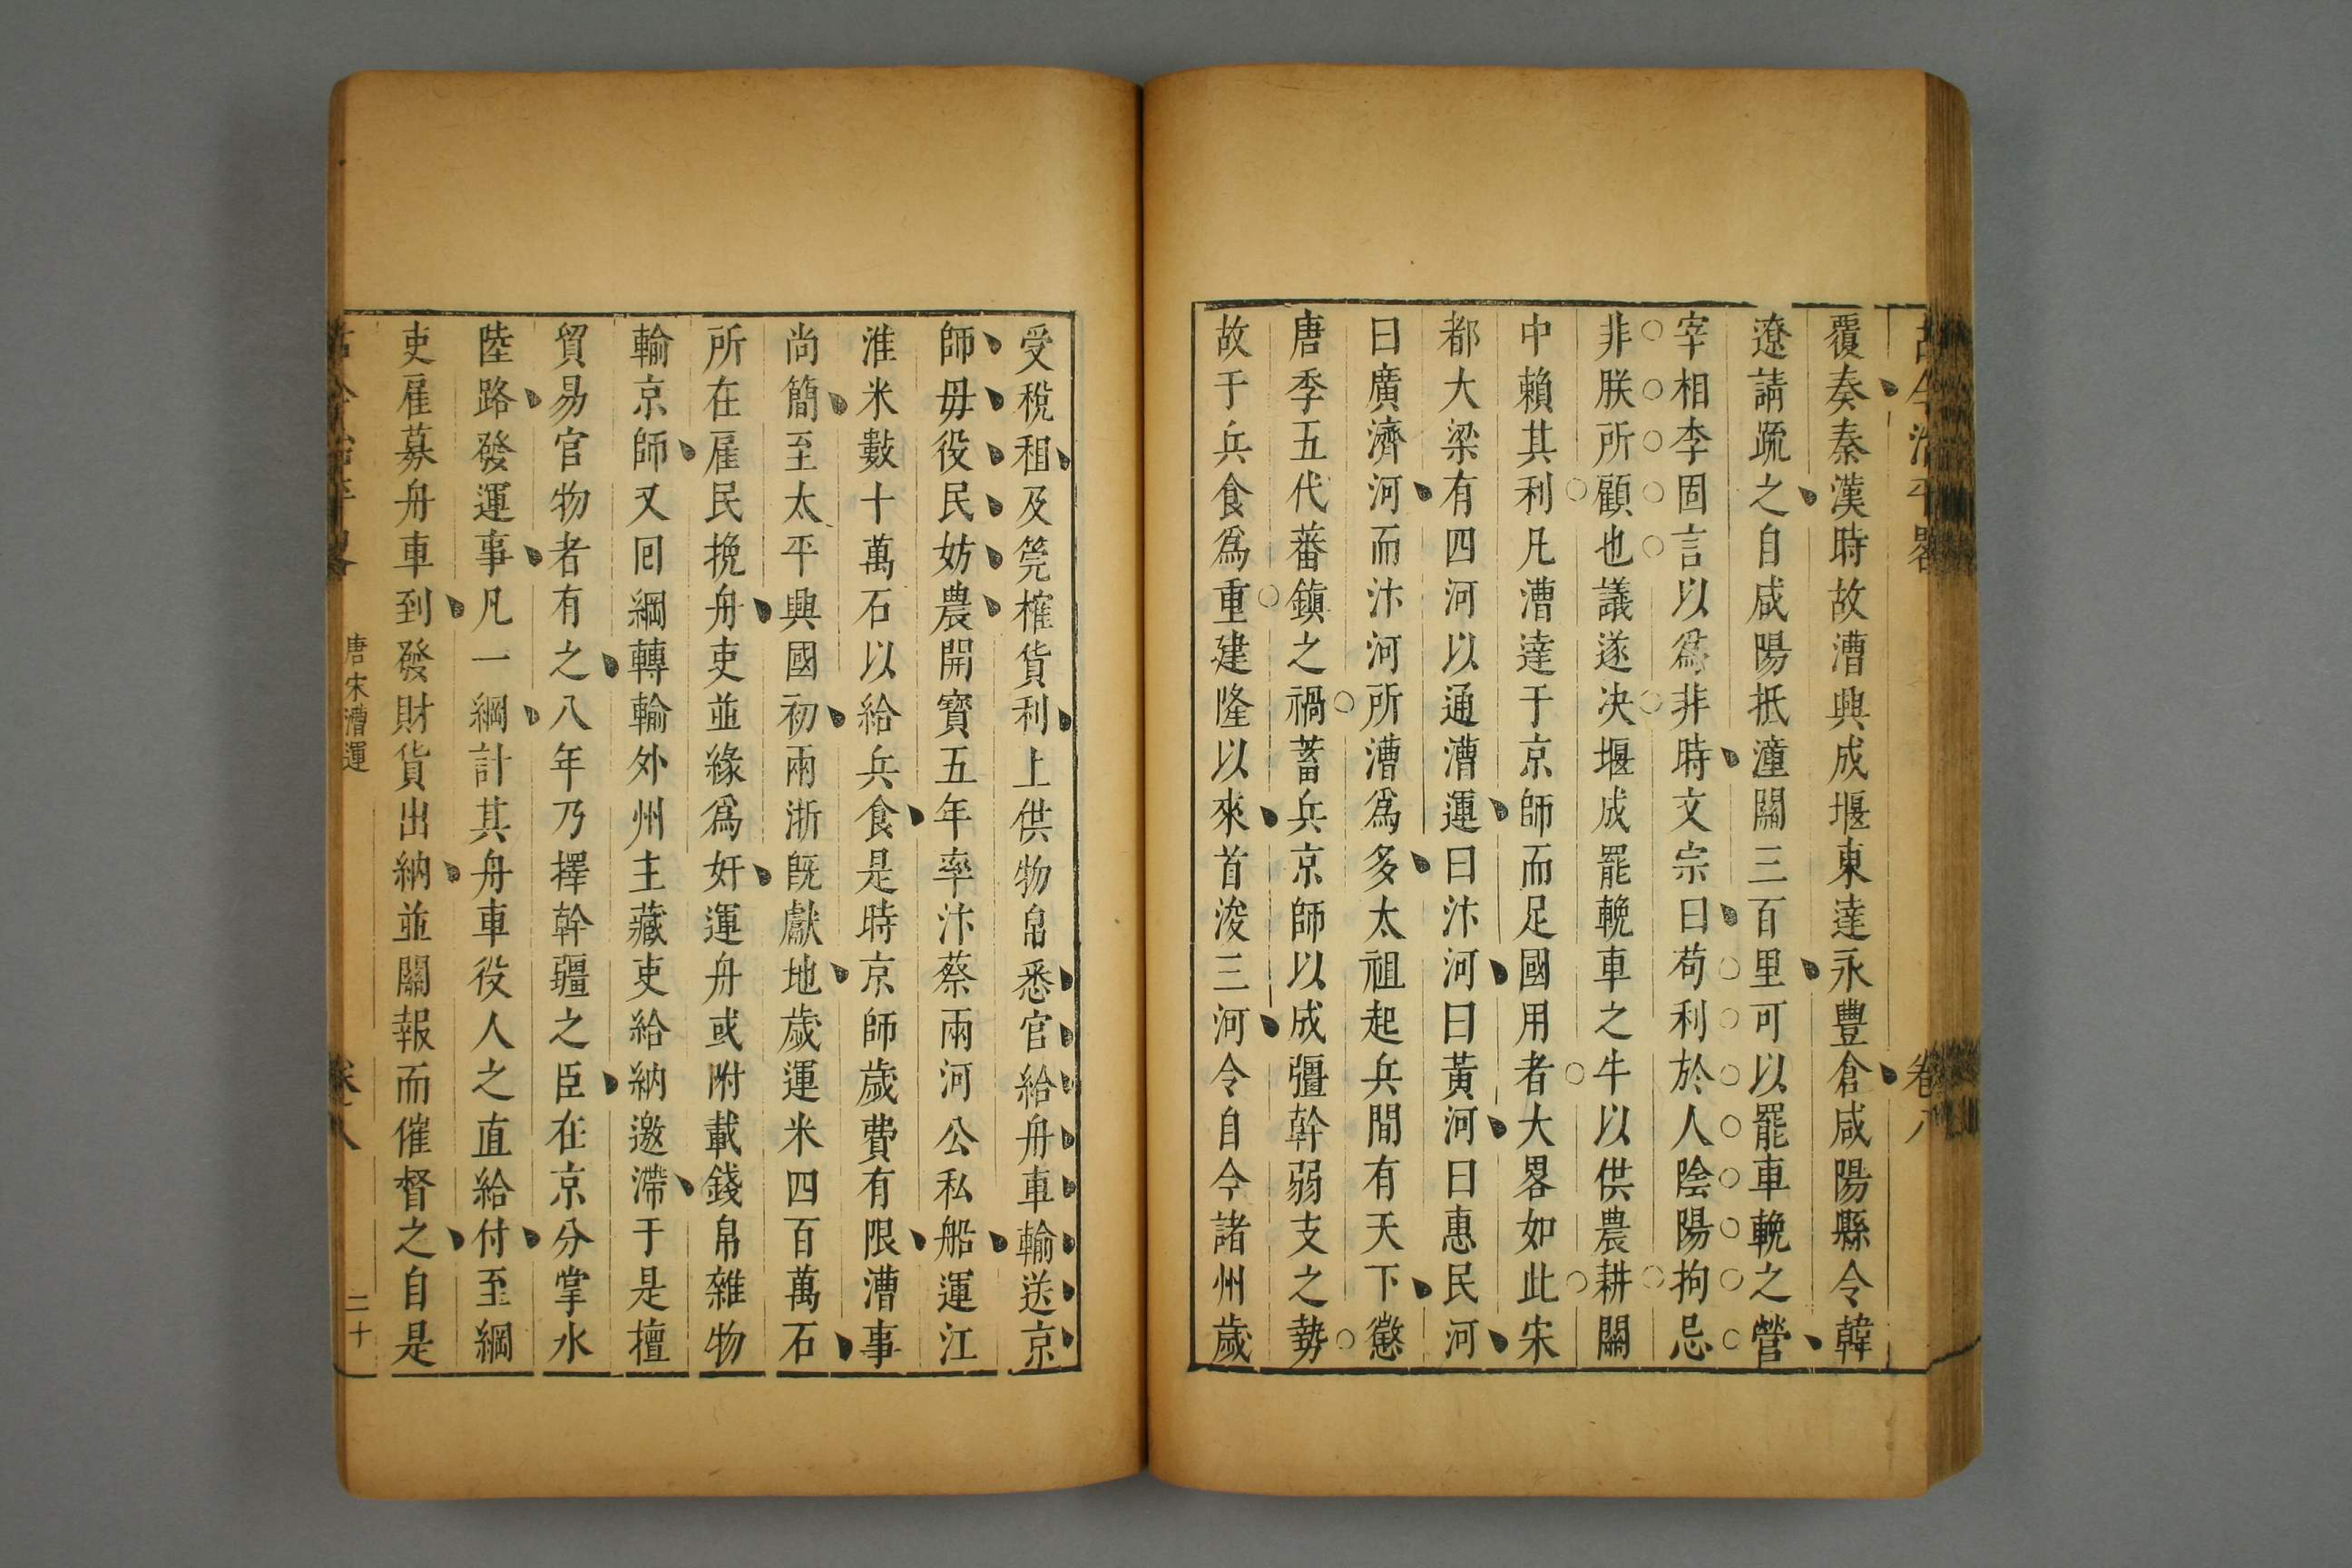 覆奏秦漢時故漕興成堰東達永豐倉咸陽縣令韓
遼請疏之自咸陽抵潼關三百里可以罷車輓之營
宰相李固言以爲非時文宗曰苟利於人陰陽拘忌
非朕所顧也議遂决堰成罷輓車之牛以供農耕關
中賴其利凡漕達于京師而足國用者大畧如此宋
都大梁有四河以通漕運曰汴河曰黃河曰惠民河
曰廣濟河而汴河所漕爲多太祖起兵間有天下懲
唐季五代蕃鎮之禍蓄兵京師以成彊幹弱支之勢
故于兵食爲重建隆以來首浚三河令自今諸州歲
受稅租及筦榷貨利上供物帛悉官給舟車輸送京
師毋役民妨農開寶五年率汴蔡兩河公私船運江
淮米數十萬石以給兵食是時京師歲費有限漕事
尚簡至太平興國初兩浙旣獻地歲運米四百萬石
所在雇民挽舟吏並緣爲奸運舟或附載錢帛雜物
輸京師又囘綱轉輸外州主藏吏給納邀滯于是擅
貿易官物者有之八年乃擇幹疆之臣在京分掌水
陸路發運事凡一綱計其舟車役人之直給付至綱
吏雇募舟車到發財貨出納並關報而催督之自是
唐宋漕運
卷八
二十